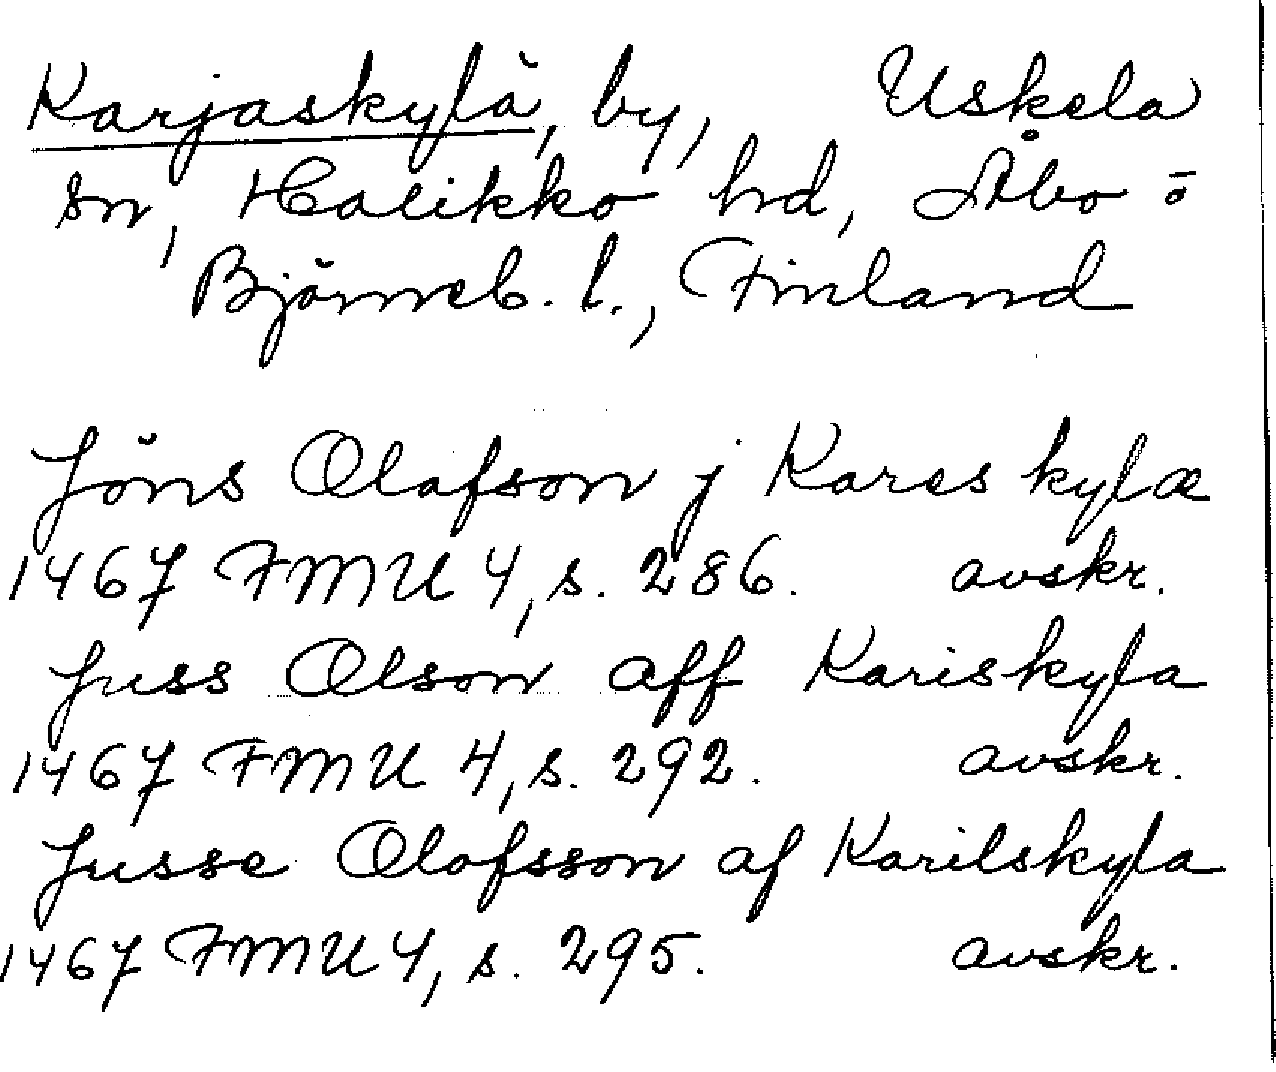 Karjaskylä, by, Uskela
sn, Halikko hd, Åbo o
Björneb. l., Finland
Jöns Olafson j Kares kylæ
1467 FMU 4, s. 286. avskr.
Juss Olson aff Kariskyla
1467 FMU 4, s. 292. avskr.
Jusse Olofsson af Karilskyla
1467 FMU 4, s. 295. avskr.